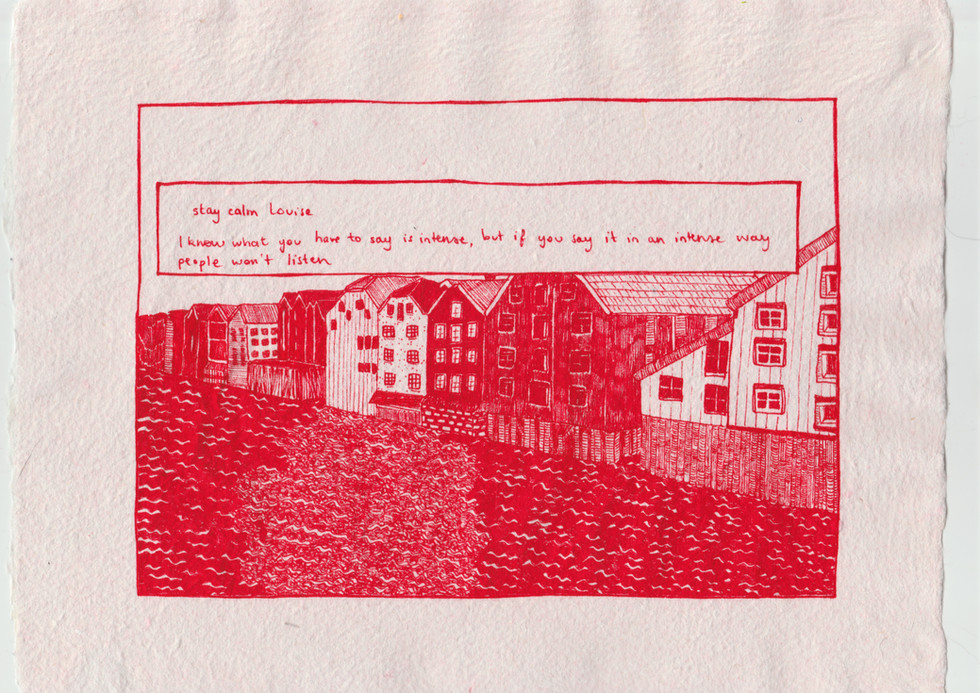 stay calm Louise
I know what you have to say is intense, but if you say it in an intense way
people won't listen